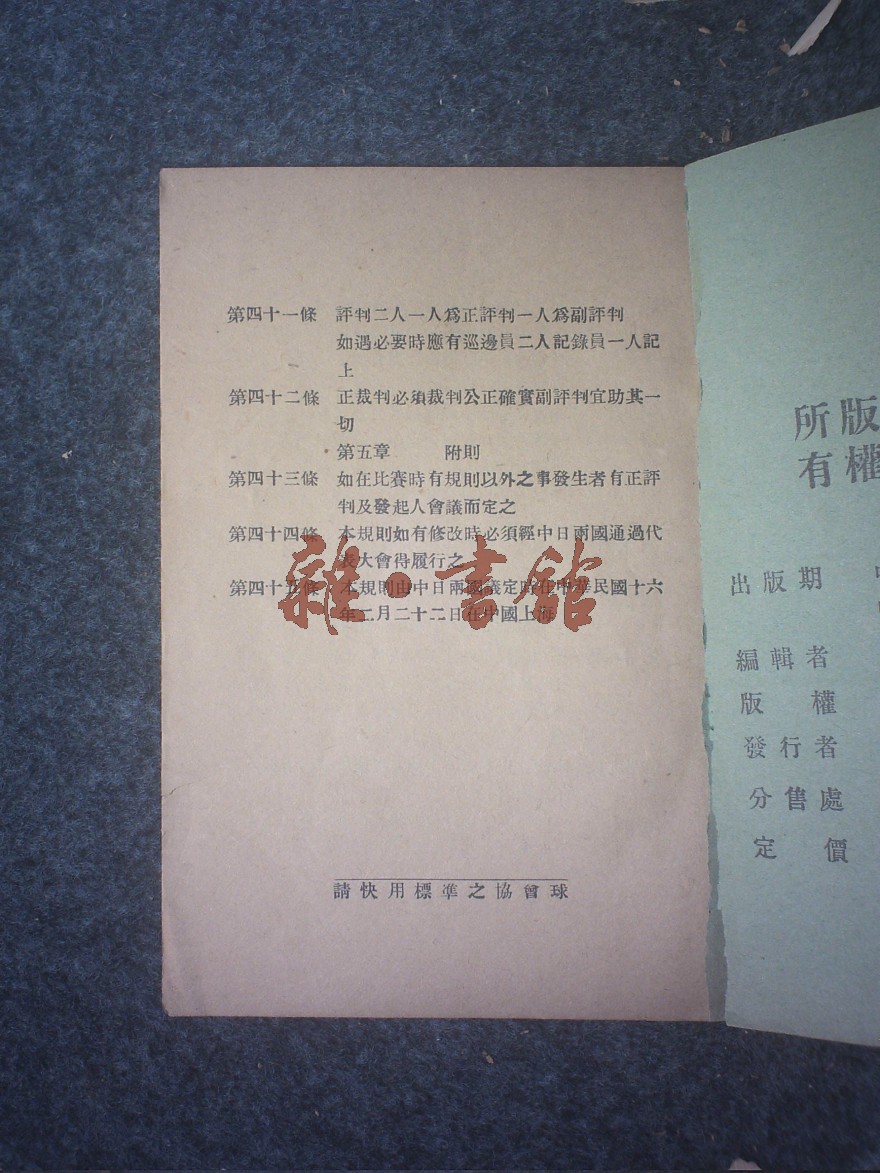 第四十一條 評判二人一人爲正評判一人爲副評判
如遇必要時應有巡邊員二人記錄員一人記
上
第四十二條 正裁判必須裁判公正確實副評判宜助其一
切
第五章 附則
第四十三條 如在比賽時有規則以外之事發生者有正評
判及發起人會議而定之
第四十四條 本規則如有修改時必須經中日兩國通過代
表大會得履行之
第四十五條 本規則由中日兩國議定時在中華民國十六
年二月二十二日在中國上海
請快用標準之協會球
雜·書館
所版
有權
出版期
編輯者
版權
發行者
分售處
定價